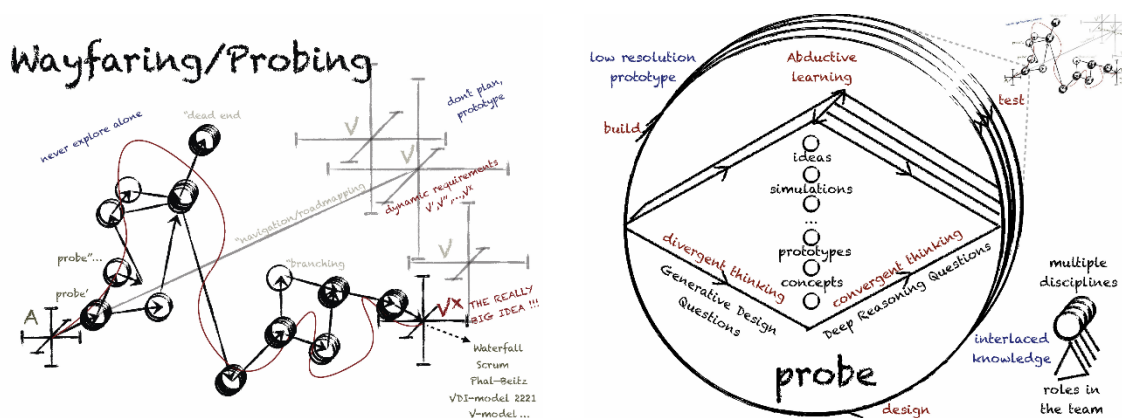 Wayfaring/Probing
"dead end
never explore alone
don't plan,
prototype
V
V
dynamic requirements
V', V'', ..., Vx
"navigation/roadmapping
probe"...
probe'
A
"branching
V
Vx
THE REALLY
BIG IDEA !!!
Waterfall
Scrum
Phal-Beitz
VDI-model 2221
V-model ...
low resolution
prototype
Abductive
learning
test
build
ideas
simulations
...
prototypes
concepts
divergent thinking
convergent thinking
Generative Design
Questions
Deep Reasoning Questions
probe
design
multiple
disciplines
interlaced
knowledge
roles in
the team